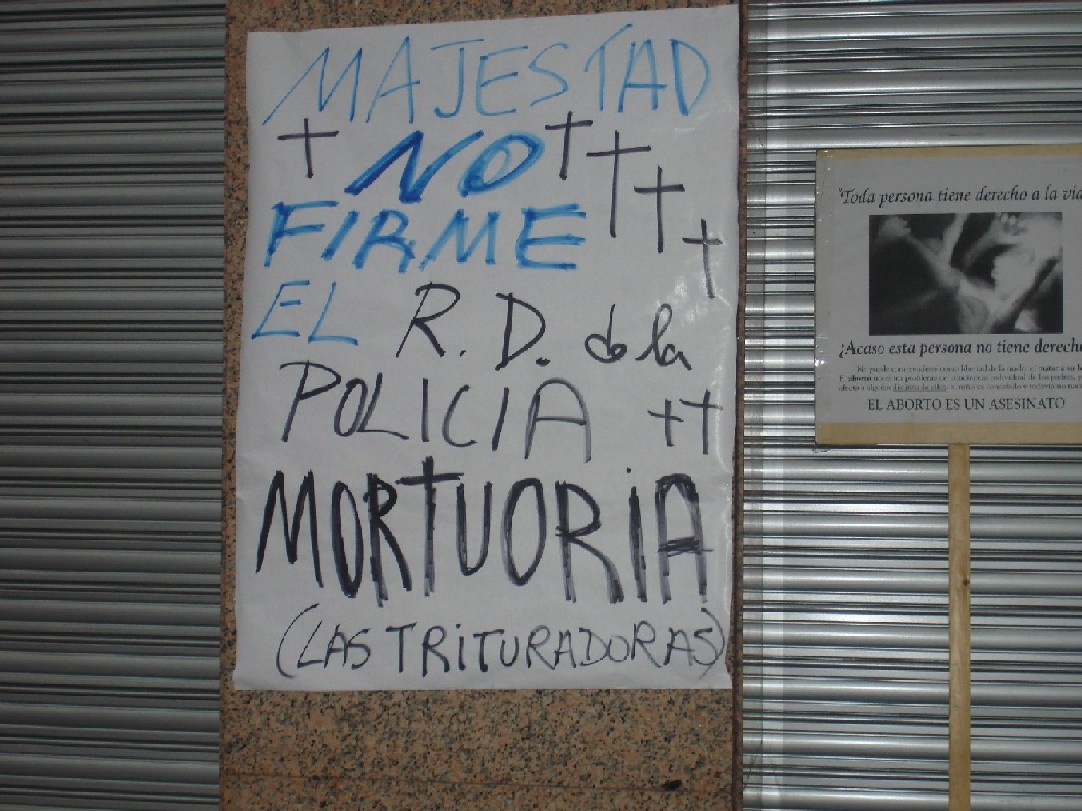 MAJESTAD
NO
FIRME
EL R. D. de la
POLICIA
MORTUORIA
(LAS TRITURADORAS)
"Toda persona tiene derecho a la vida
¿Acaso esta persona no tiene derecho
EL ABORTO ES UN ASESINATO